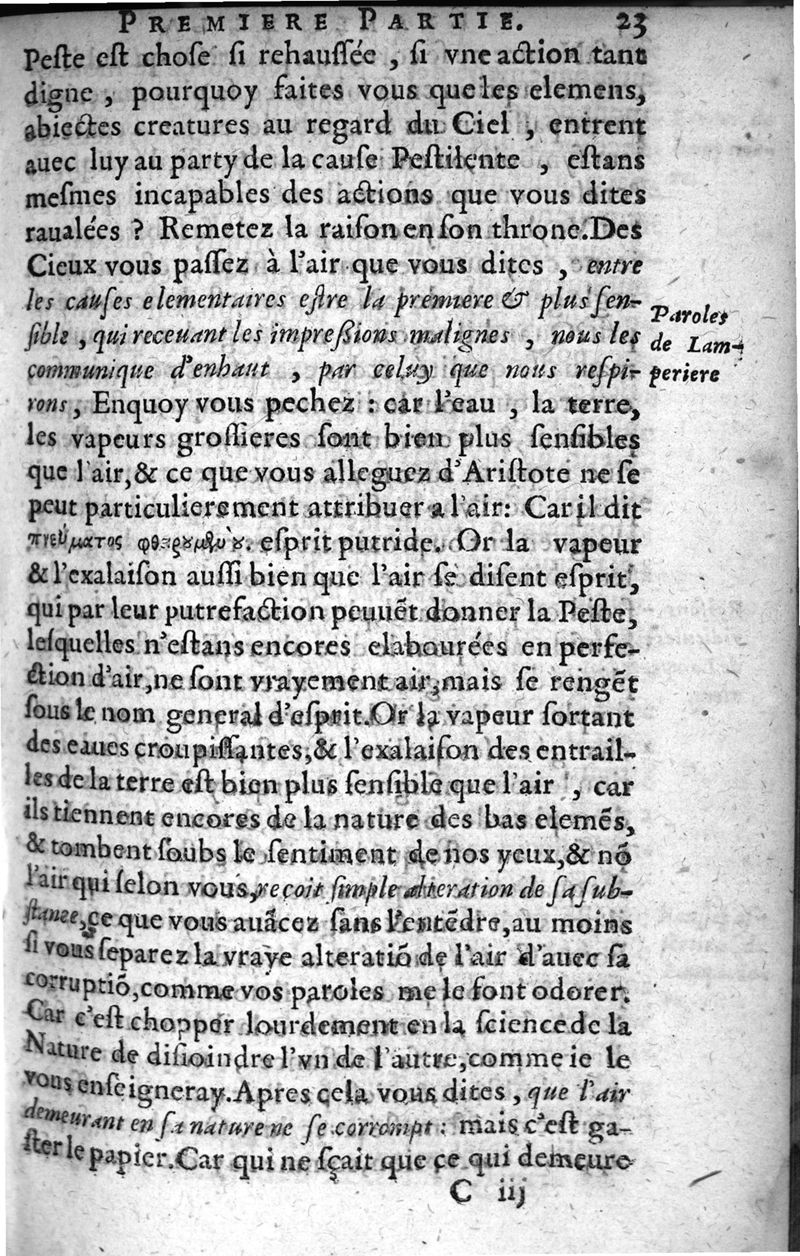 PREMIERE PARTIE. 23
Peſte eſt choſe ſi rehauſſée , ſi vne action tant
digne , pourquoy faites vous que les elemens,
abiectes creatures au regard du Ciel , entrent
auec luy au party de la cauſe Peſtilente , eſtans
meſmes incapables des actions que vous dites
raualées ? Remetez la raiſon en ſon throne.Des
Cieux vous paſſez à l'air que vous dites , entre
les cauſes elementaires eſtre la premiere & plus ſen-
ſible , qui receuant les impreſſions malignes , nous les
communique d'enhaut , par celuy que nous reſpi-
rons, Enquoy vous pechez : car l'eau , la terre,
les vapeurs groſſieres ſont bien plus ſenſibles
que l'air,& ce que vous alleguez d'Ariſtote ne ſe
peut particulierement attribuer a l'air: Car il dit
πνεύματος eſprit putride. Or la vapeur
& l'exalaiſon auſſi bien que l'air ſe diſent eſprit,
qui par leur putrefaction peuuẽt donner la Peſte,
leſquelles n'eſtans encores elabourées en perfe-
ction d'air,ne ſont vrayement air,mais ſe rengẽt
ſous le nom general d'eſprit.Or la vapeur ſortant
des eaues croupiſſantes,& l'exalaiſon des entrail-
les de la terre eſt bien plus ſenſible que l'air , car
ils tiennent encores de la nature des bas elemẽs,
& tombent ſoubs le ſentiment de nos yeux,& nõ
l'air qui ſelon vous,reçoit ſimple alteration de ſa ſub-
ſtance,ce que vous auãcez ſans l'entẽdre,au moins
ſi vous ſeparez la vraye alteratiõ de l'air d'auec ſa
corruptiõ,comme vos paroles me le font odorer.
Car c'eſt chopper lourdement en la ſcience de la
Nature de diſioindre l'vn de l'autre,comme ie le
vous enſeigneray.Apres cela vous dites , que l'air
demeurant en ſa nature ne ſe corrompt : mais c'eſt ga-
ſter le papier.Car qui ne ſçait que ce qui demeure
C iij
Paroles
de Lam-
periere